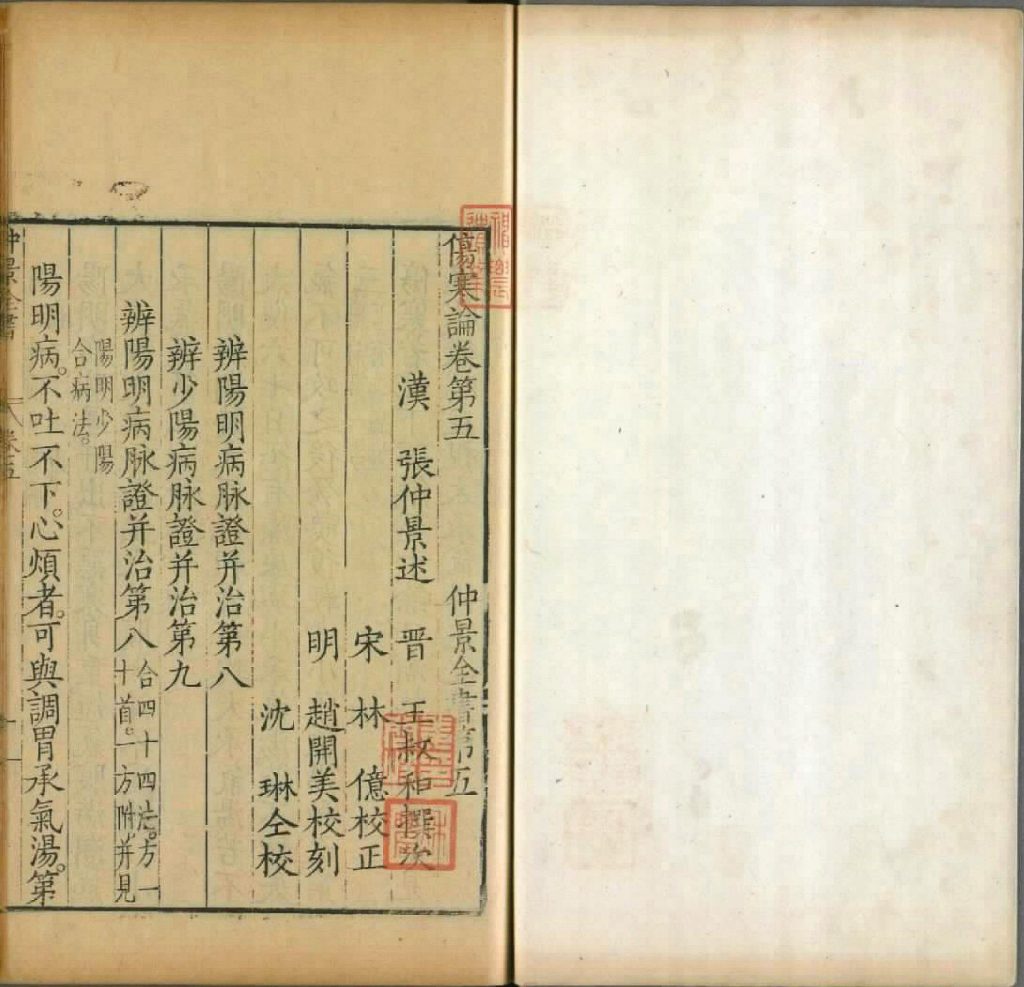 傷寒論卷第五 仲景全書第五
漢 張仲景述 晋 王叔和撰次
宋 林 億校正
明 趙開美校刻
沈 琳仝校
辨陽明病脉證并治第八
辨少陽病脉證并治第九
辨陽明病脉證并治第八 合四十四法。方一
十首。一方附并見
陽明少陽
合病法。
陽明病。不吐不下。心煩者。可與調胃承氣湯。第
仲景全書 卷五 一